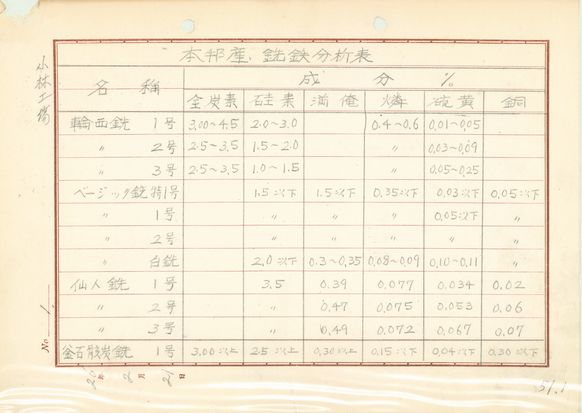 本邦産 銑鉄分析表
名 称 成 分 %
全炭素 硅素 満俺 燐 硫黄 銅
輪西銑 1号 3.00~4.5 2.0~3.0 0.4~0.6 0.01~0.05
〃 2号 2.5~3.5 1.5~2.0 0.03~0.09
〃 3号 2.5~3.5 1.0~1.5 0.05~0.25
ベージック銑特1号 1.5以下 1.5以下 0.35以下 0.03以下 0.05以下
〃 1号 〃 〃 〃 0.05以下 〃
〃 2号 〃 〃 〃 〃
〃 白銑 2.0以下 0.3~0.35 0.08~0.09 0.10~0.11 〃
仙人銑 1号 3.5 0.39 0.077 0.034 0.02
〃 2号 〃 0.47 0.075 0.053 0.06
〃 3号 〃 0.49 0.072 0.067 0.07
釜石骸炭銑 1号 3.00以上 2.5以上 0.30以上 0.15以下 0.04以下 0.30以下
小林工場
No 1.
年 2月 21日
51.1